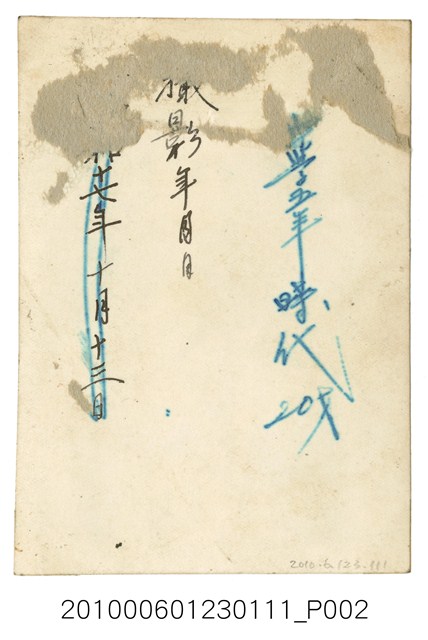 學五年時代
20才
撮影年月日
和十七年十月十三日
2010.6.123.111
201000601230111_P002